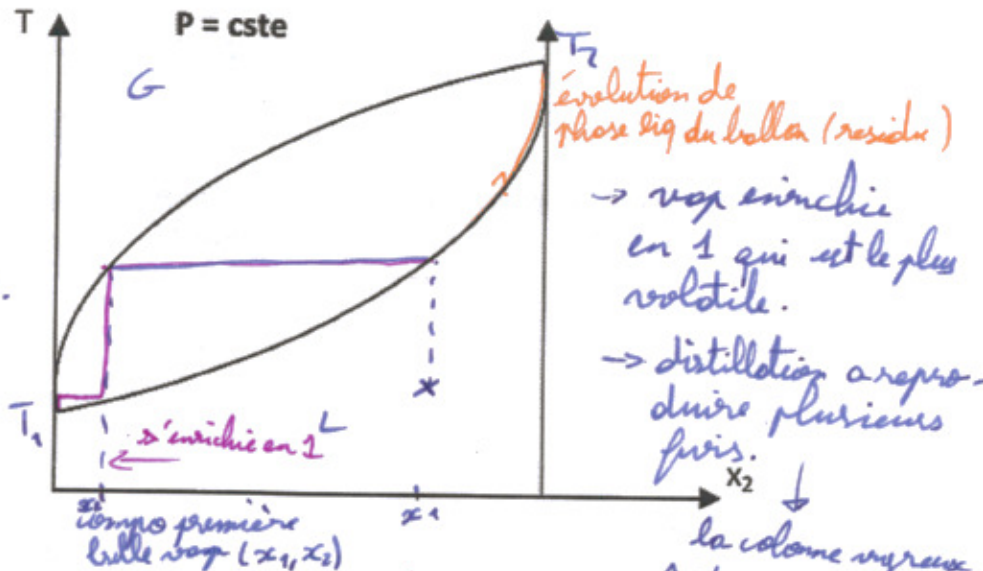 T
P = cste
T₂
G
évolution de
phase liq du ballon (residu)
→ vap enrichie
en 1 qui est le plus
volatile.
→ distillation a repro-
duire plusieurs
fois.
T₁
L
s'enrichie en 1
x₂
x1
compo première
bulle vap (x₁, x₂)
la colonne vigreux